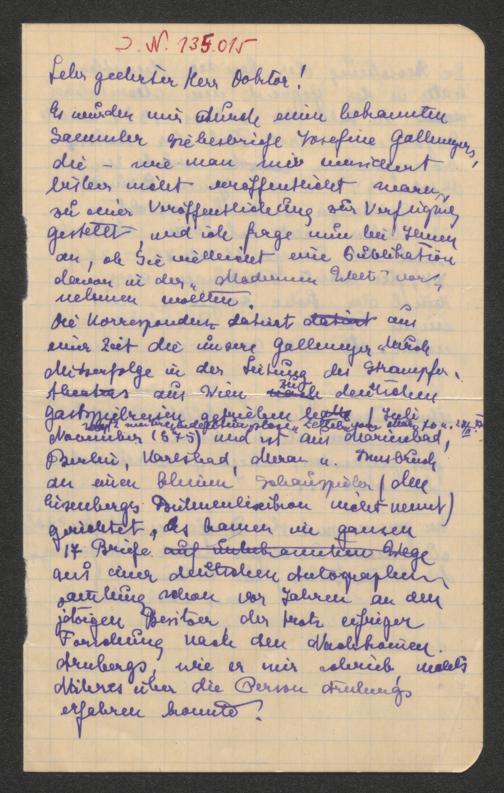 J. N. 135.015
Sehr geehrter Herr Doktor!
Es wurden mir durch einen bekannten
Sammler Liebesbriefe Josefine Gallmeyers,
die – wie man mir versichert
bisher nicht veröffentlicht waren
zu einer Veröffentlichung zur Verfügung
gestellt, und ich frage nun bei Ihnen
an, ob Sie vielleicht eine Publikation
davon in der „Modernen Welt" vor-
nehmen wollten.
Die Korrespondenz datiert datiert aus
einer Zeit die unsere Gallmeyer durch
Misserfolge in der Leitung des Strampfer-
theaters aus Wien zu deutschen
Gastspielreisen getrieben hatte (Juli
November 1875) und ist aus Marienbad,
Berlin, Karlsbad, Meran u. Innsbruck
an einen kleinen Schauspieler (den
Eisenbergs Bühnenlexikon nicht nennt)
gerichtet, es kamen im ganzen
17 Briefe auf unbekanntem Wege
aus einer deutschen Autographen-
samlung schon vor Jahren an den
jetzigen Besitzer der trotz eifriger
Forschung nach den Nachkomen
wie er mir schrieb nichts
Näheres über die Person
erfahren konnte!